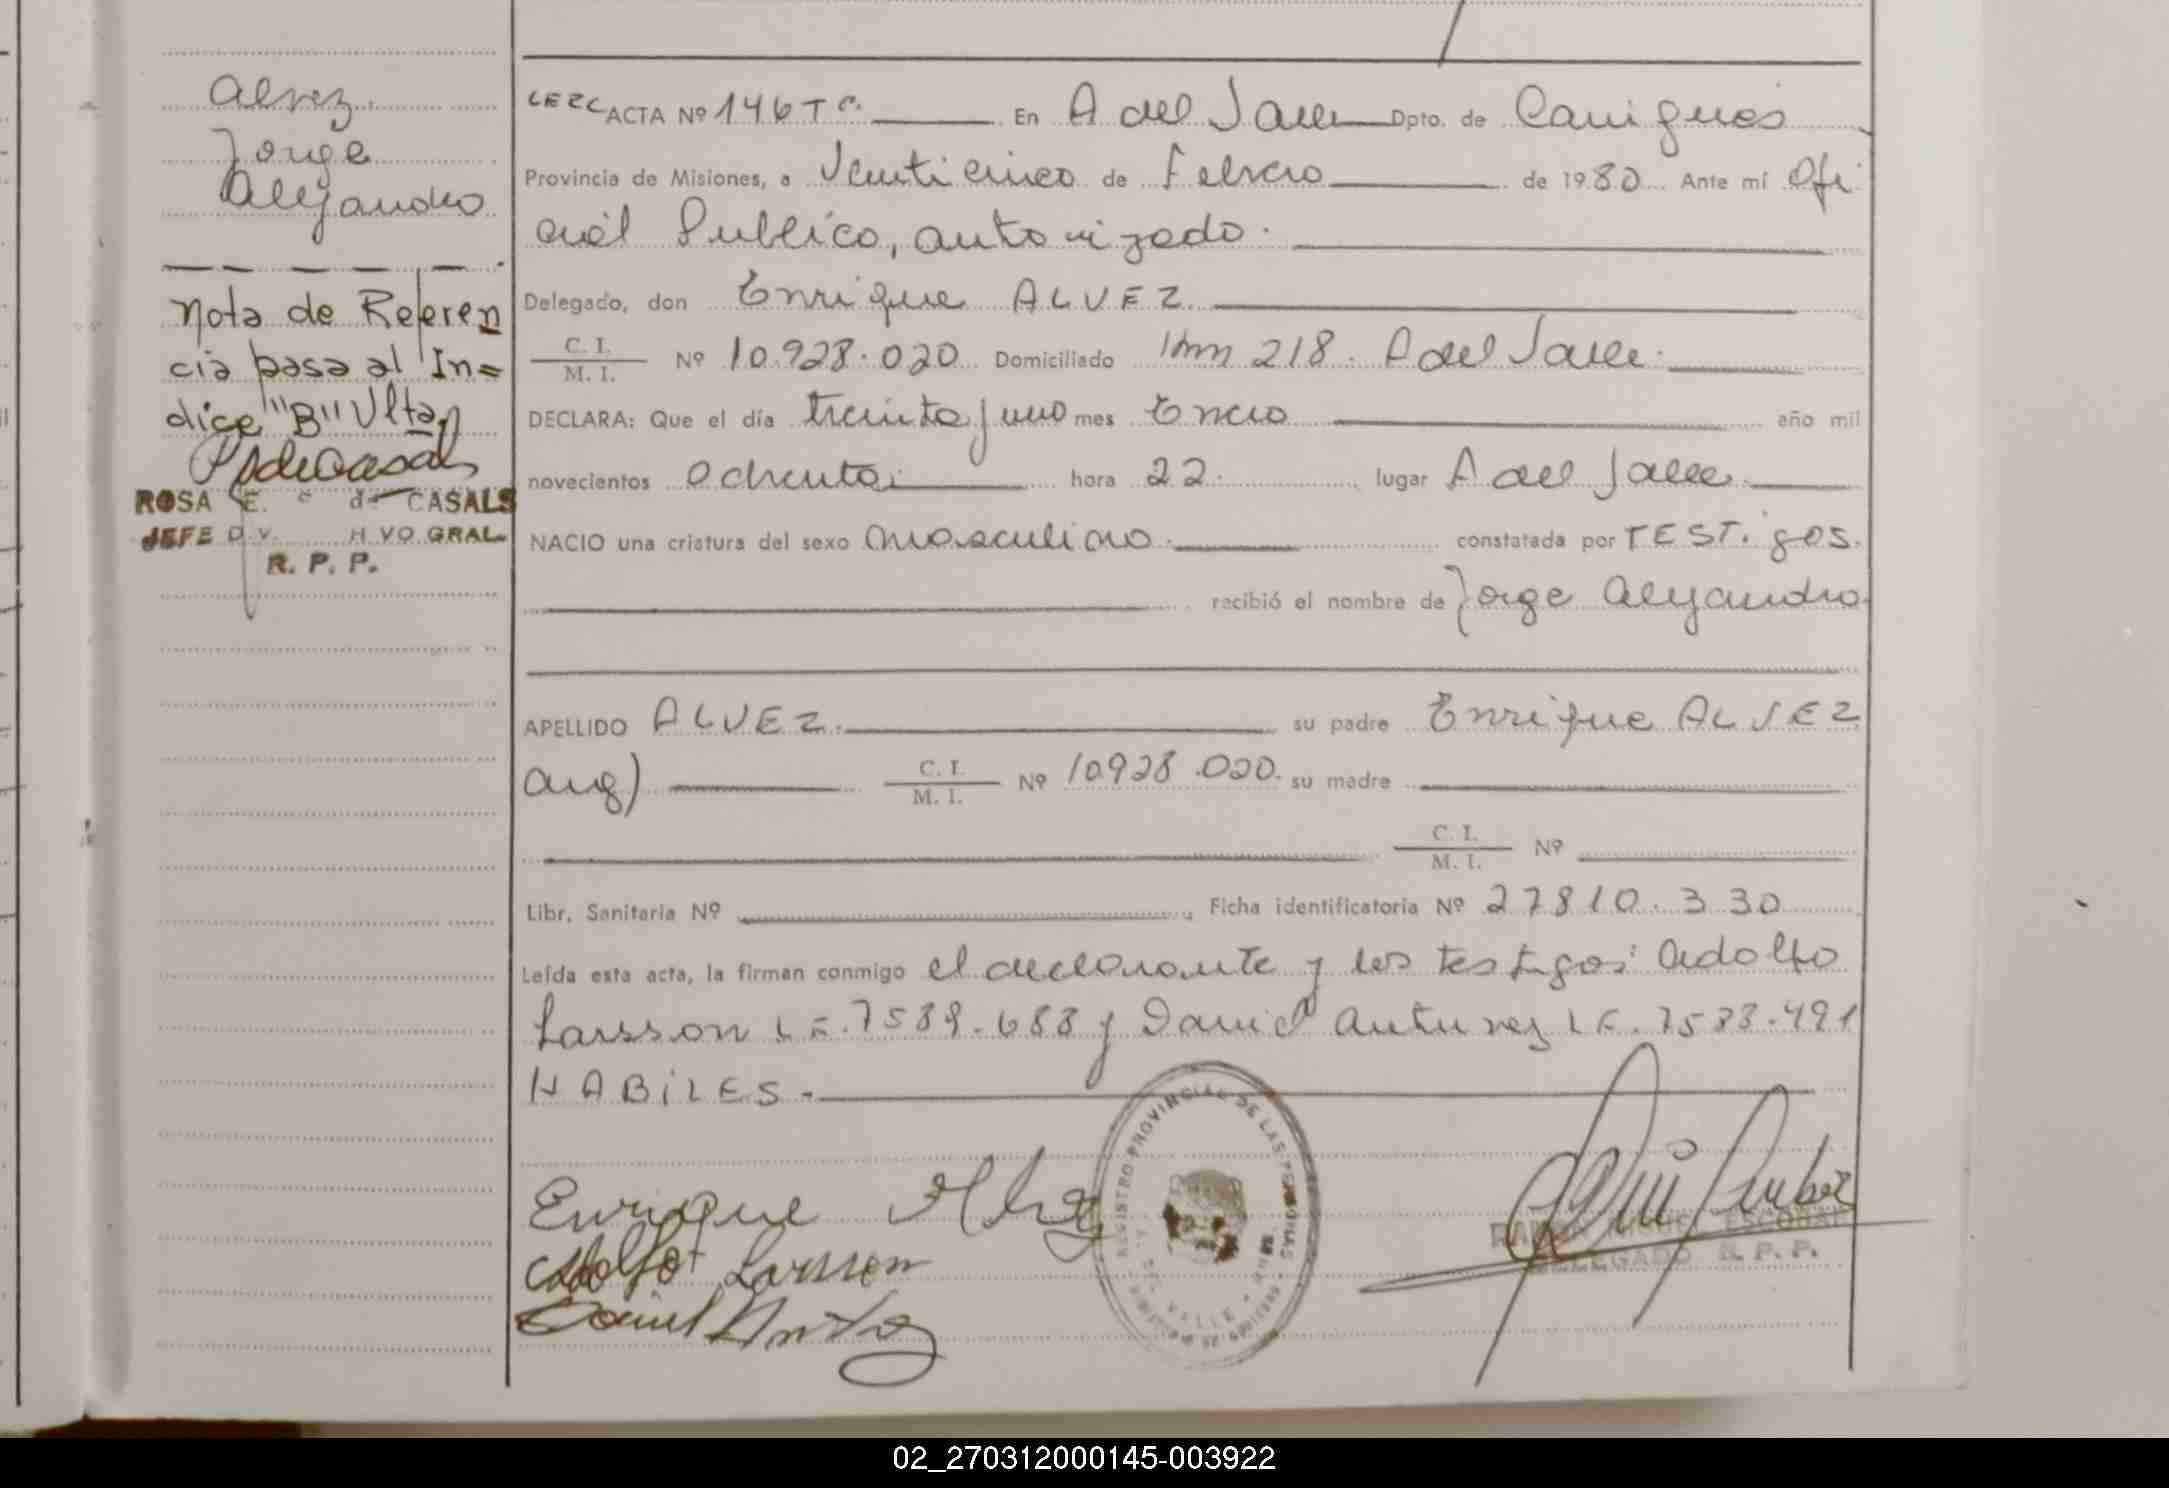 Alvez
Jorge
Alejandro
Nota de Referen
cia pasa al In=
dice "B" Ulta
ROSA E. de CASALS
JEFE D V. H VO GRAL.
R. P. P.
ACTA Nº 146 Tº. En A del Valle Dpto. de Cainguas
Provincia de Misiones, a Venticinco de Febrero de 1980 Ante mí Ofi
cial Publico, autorizado.
Delegado, don Enrique ALVEZ
C. I.
M. I. Nº 10.928.020 Domiciliado Km 218. A del Valle.
DECLARA: Que el día treinta y uno mes Enero año mil
novecientos ochenta hora 22. lugar A del Valle.
NACIO una criatura del sexo masculino. constatada por TESTigos.
recibió el nombre de Jorge Alejandro
APELLIDO ALVEZ. su padre Enrique ALVEZ
arg) C. I.
M. I. Nº 10928.020. su madre
C. I.
M. I. Nº
Libr. Sanitaria Nº Ficha identificatoria Nº 27810.330
Leída esta acta, la firman conmigo el declarante y los testigos: Adolfo
Larsson LE.7589.688 y Daniel Antunez LE.7533.491
HABILES.
Enrique Alvez
Adolfo Larsson
REGISTRO PROVINCIAL DE LAS PERSONAS
DEL VALLE
ESCOBAR
DELEGADO R. P. P.
02_270312000145-003922